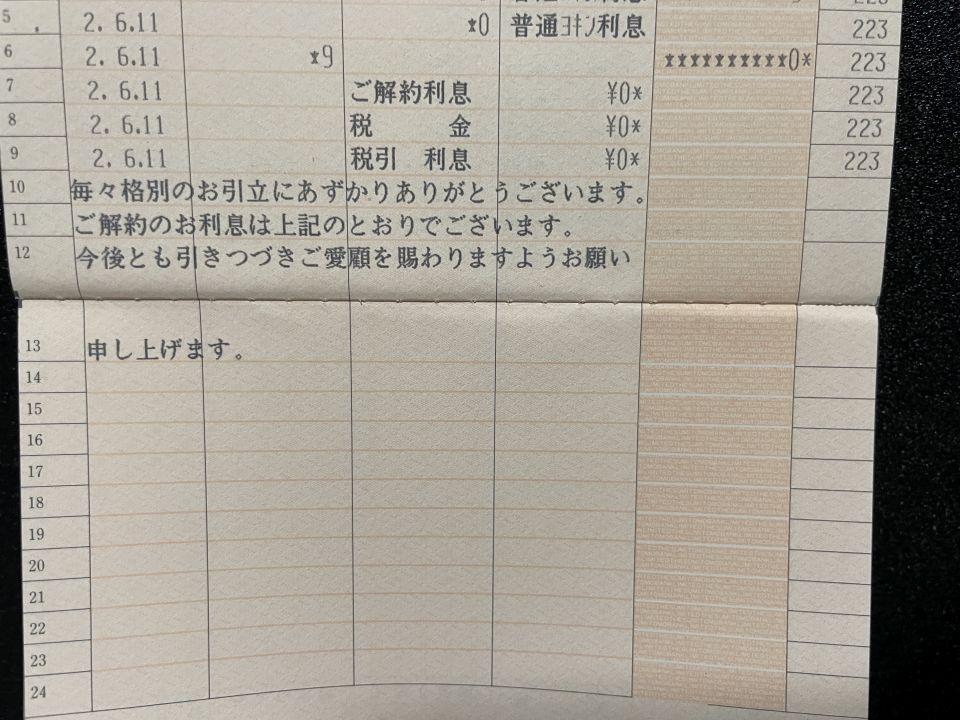 5 2. 6.11 *0 普通ヨキン利息 223
6 2. 6.11 *9 **********0* 223
7 2. 6.11 ご解約利息 ¥0* 223
8 2. 6.11 税 金 ¥0* 223
9 2. 6.11 税引 利息 ¥0* 223
10 毎々格別のお引立にあずかりありがとうございます。
11 ご解約のお利息は上記のとおりでございます。
12 今後とも引きつづきご愛顧を賜わりますようお願い
13 申し上げます。
14
15
16
17
18
19
20
21
22
23
24